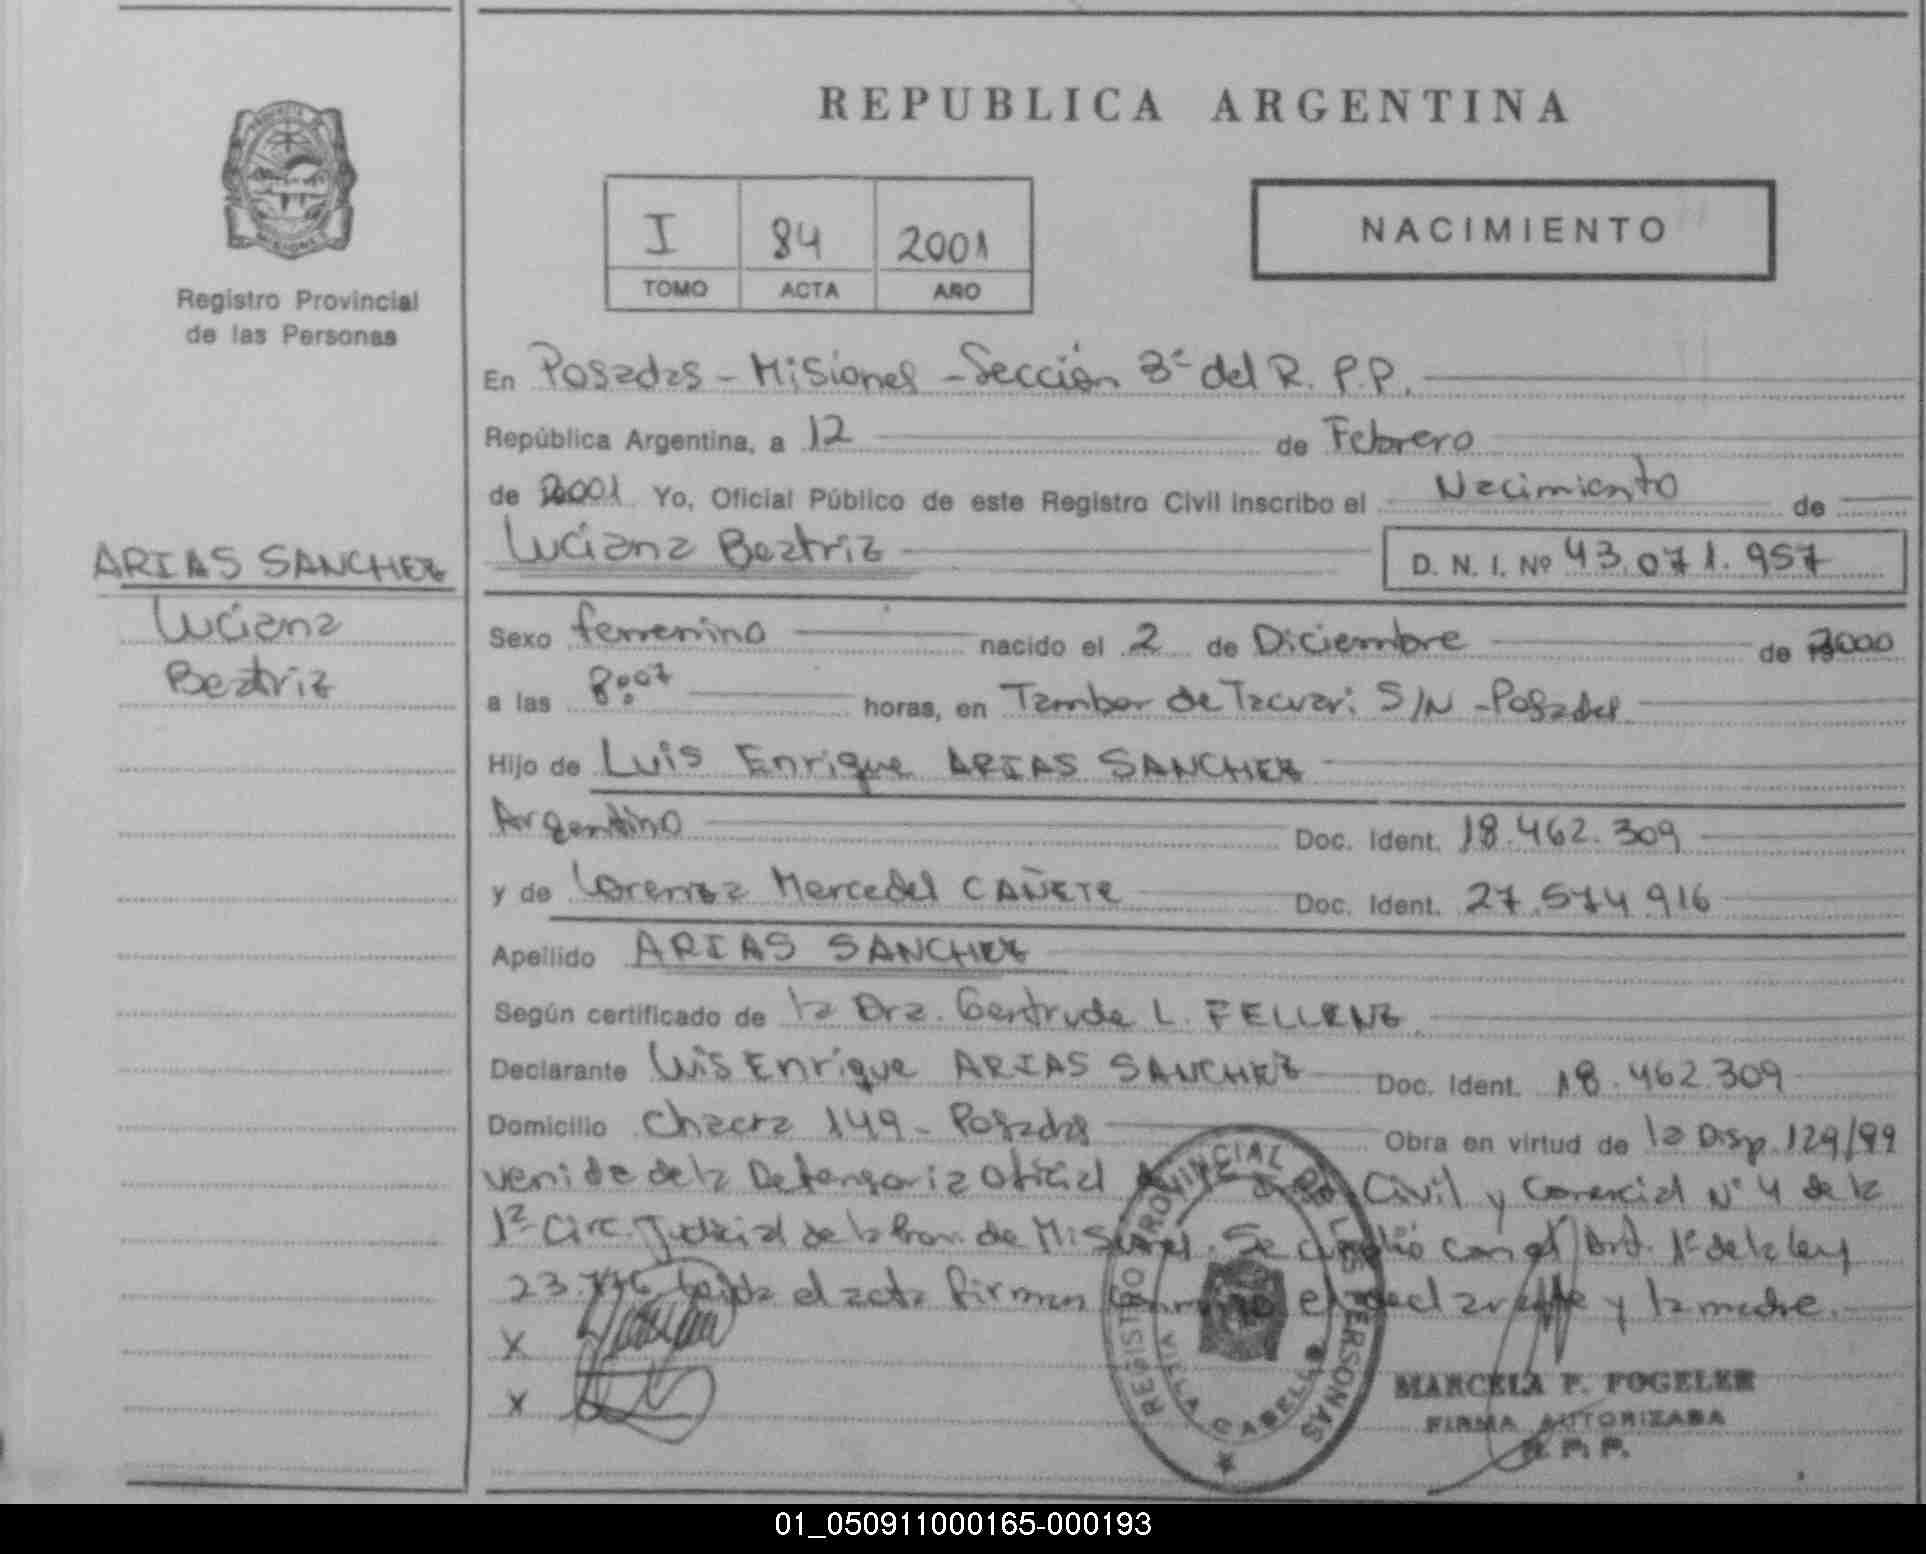 REPUBLICA ARGENTINA
I 84 2001
TOMO ACTA AÑO
NACIMIENTO
Registro Provincial
de las Personas
En Posadas - Misiones - Sección 3ª del R. P.P.
República Argentina, a 12 de Febrero
de 2001 Yo, Oficial Público de este Registro Civil inscribo el Nacimiento de
Luciana Beatriz D. N. I. Nº 43.071.957
ARIAS SANCHEZ
Luciana
Beatriz
Sexo femenino nacido el 2 de Diciembre de 2000
a las 8:07 horas, en Tambor de Tacuari S/N - Posadas
Hijo de Luis Enrique ARIAS SANCHEZ
Argentino Doc. Ident. 18.462.309
y de Lorenza Mercedes CAÑETE Doc. Ident. 27.574.916
Apellido ARIAS SANCHEZ
Según certificado de la Dra. Gertrude L. FELLENZ
Declarante Luis Enrique ARIAS SANCHEZ Doc. Ident. 18.462.309
Domicilio Chacra 149 - Posadas Obra en virtud de la Disp. 129/99
venida de la Defensoria Oficial Civil y Comercial Nº 4 de la
1ª Circ. Judicial de la Prov. de Misiones. Se cumplió con el Art. 1º de la ley
23.776 Leida el acta firman conmigo el declarante y la madre.
X
X
REGISTRO PROVINCIAL DE LAS PERSONAS
VILLA CABELLO
MARCELA F. FOGELER
FIRMA AUTORIZADA
R. P. P.
01_050911000165-000193